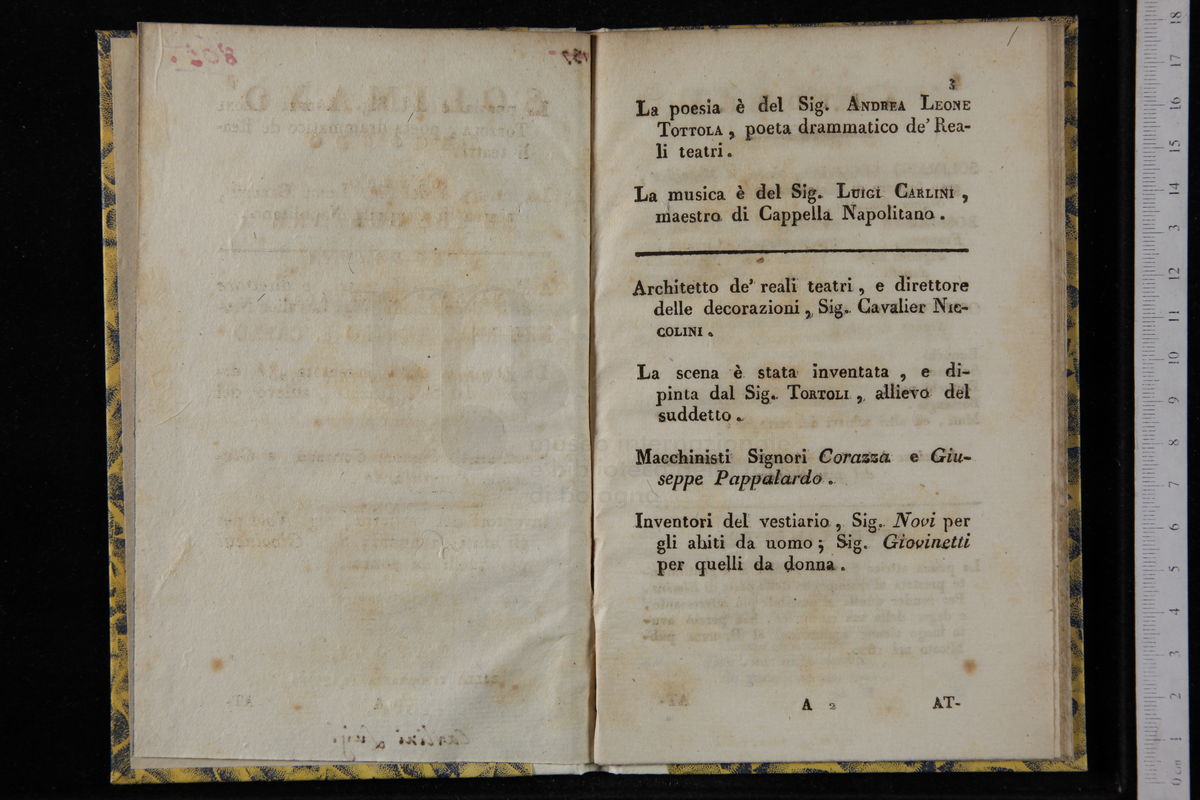 3
La poesia è del Sig. ANDREA LEONE
TOTTOLA, poeta drammatico de' Rea-
li teatri.
La musica è del Sig. LUIGI CARLINI,
maestro di Cappella Napolitano.
Architetto de' reali teatri, e direttore
delle decorazioni, Sig. Cavalier NIC-
COLINI.
La scena è stata inventata, e di-
pinta dal Sig. TORTOLI, allievo del
suddetto.
Macchinisti Signori Corazza e Giu-
seppe Pappalardo.
Inventori del vestiario, Sig. Novi per
gli abiti da uomo; Sig. Giovinetti
per quelli da donna.
A 2 AT-
museo internazionale
di bologna
0 cm 1 2 3 4 5 6 7 8 9 10 11 12 13 14 15 16 17 18